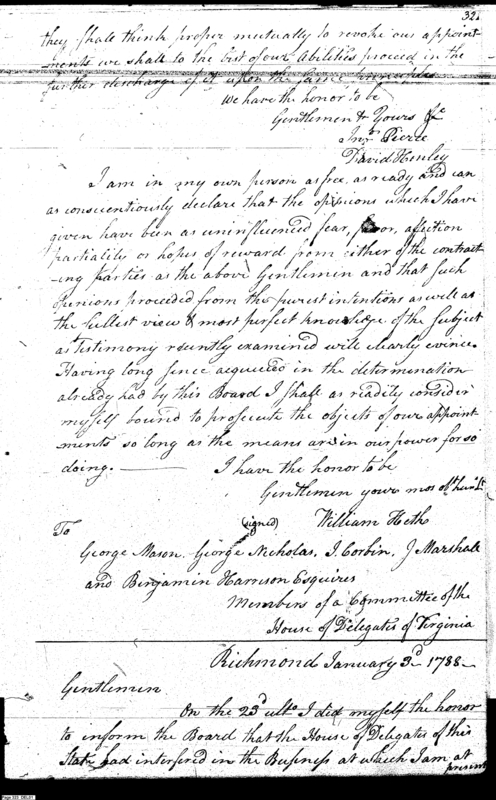 321
they shall think proper mutually to revoke our appoint-
ments we shall to the best of our Abilities proceed in the
further discharge of it upon the same
We have the honor to be
Gentlemen & Yours &c
Jnº Pierce
David Henley
I am in my own person as free, as ready and can
as conscientiously declare that the opinions which I have
given have been as uninfluenced fear, favor, affection
partiality or hopes of reward from either of the contract-
-ing parties as the above Gentlemen and that such
opinions proceeded from the purest intentions as well as
the fullest view & most perfect knowledge of the subject
as Testimony recently examined will clearly evince.
Having long since acquiesced in the determination
already had by this Board I shall as readily consider
myself bound to prosecute the objects of our appoint
ments so long as the means are in our power for so
doing. — I have the honor to be
Gentlemen your mos obt hum St
(signed) William Heth
To
George Mason, George Nicholas, J. Corbin, J Marshall
and Benjamin Harrison Esquires
Members of a Committee of the
House of Delegates of Virginia
Richmond January 3d 1788
Gentlemen
On the 23d ulto I did myself the honor
to inform the Board that the House of Delegates of this
State had interfered in the Business at which I am at
present